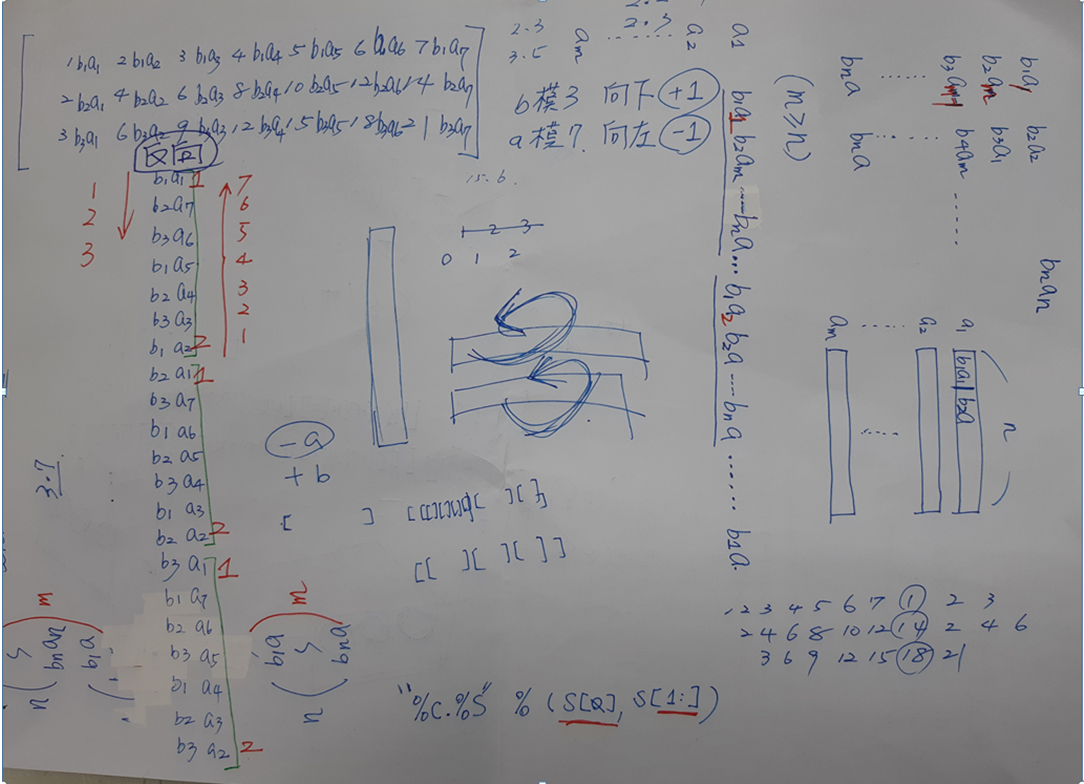 1b₁a₁ 2b₁a₂ 3b₁a₃ 4b₁a₄ 5b₁a₅ 6b₁a₆ 7b₁a₇
2b₂a₁ 4b₂a₂ 6b₂a₃ 8b₂a₄ 10b₂a₅ 12b₂a₆ 14b₂a₇
3b₃a₁ 6b₃a₂ 9b₃a₃ 12b₃a₄ 15b₃a₅ 18b₃a₆ 21b₃a₇
2.3
3.5
2.3
b模3 向下 +1
a模7 向左 -1
15.6
b₁a₁ 1 7
b₂a₇ 6
b₃a₆ 5
b₁a₅ 4
b₂a₄ 3
b₃a₃ 2
b₁a₂ 2 1
1
2
3
b₂a₁ 1
b₃a₇
b₁a₆
b₂a₅
b₃a₄
b₁a₃
b₂a₂ 2
b₃a₁ 1
b₁a₇
b₂a₆
b₃a₅
b₁a₄
b₂a₃
b₃a₂ 2
3.7
m
n
bₙaₙ
b₁a
m
n
b₁a
bₙa
-a
+b
2 3
0 1 2
[ ]
[[ ][ ][ ]]
a₁ a₂ ...... aₘ
b₁a₁ b₂aₘ ...... bₙa ... b₁a₂ b₂a ...... bₙa ...... b₁a
(m≥n)
b₁a₁ b₂a₂
b₂aₘ b₃a₁
b₃aₘ₋₁ b₄aₘ ......
bₙa bₙa
bₙaₙ
a₁ a₂ ...... aₘ
b₁a₁ b₂a
n
1 2 3 4 5 6 7 1 2 3
2 4 6 8 10 12 14 2 4 6
3 6 9 12 15 18 21
"%c.%s" % (s[0], s[1:])